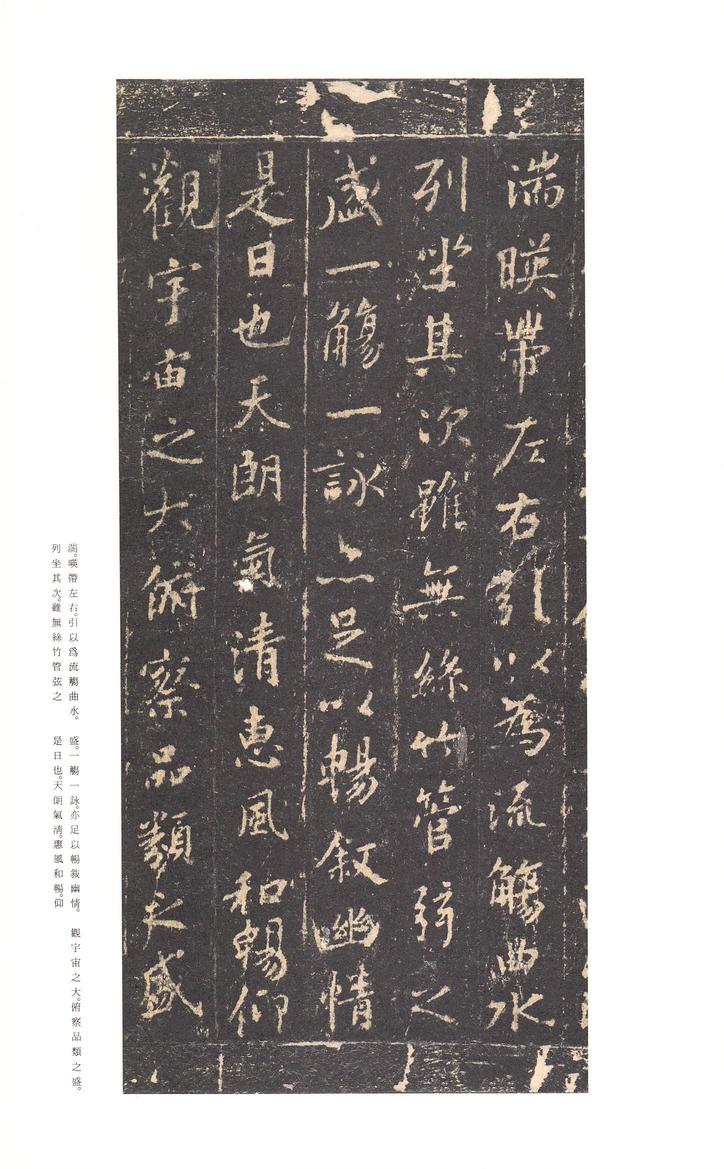 湍暎帶左右引以為流觴曲水
列坐其次雖無絲竹管弦之
盛一觴一詠亦足以暢敘幽情
是日也天朗氣清惠風和暢仰
觀宇宙之大俯察品類之盛
湍。暎帶左右。引以爲流觴曲水。
列坐其次。雖無絲竹管弦之
盛。一觴一詠。亦足以暢敍幽情。
是日也。天朗氣清。惠風和暢。仰
觀宇宙之大。俯察品類之盛。